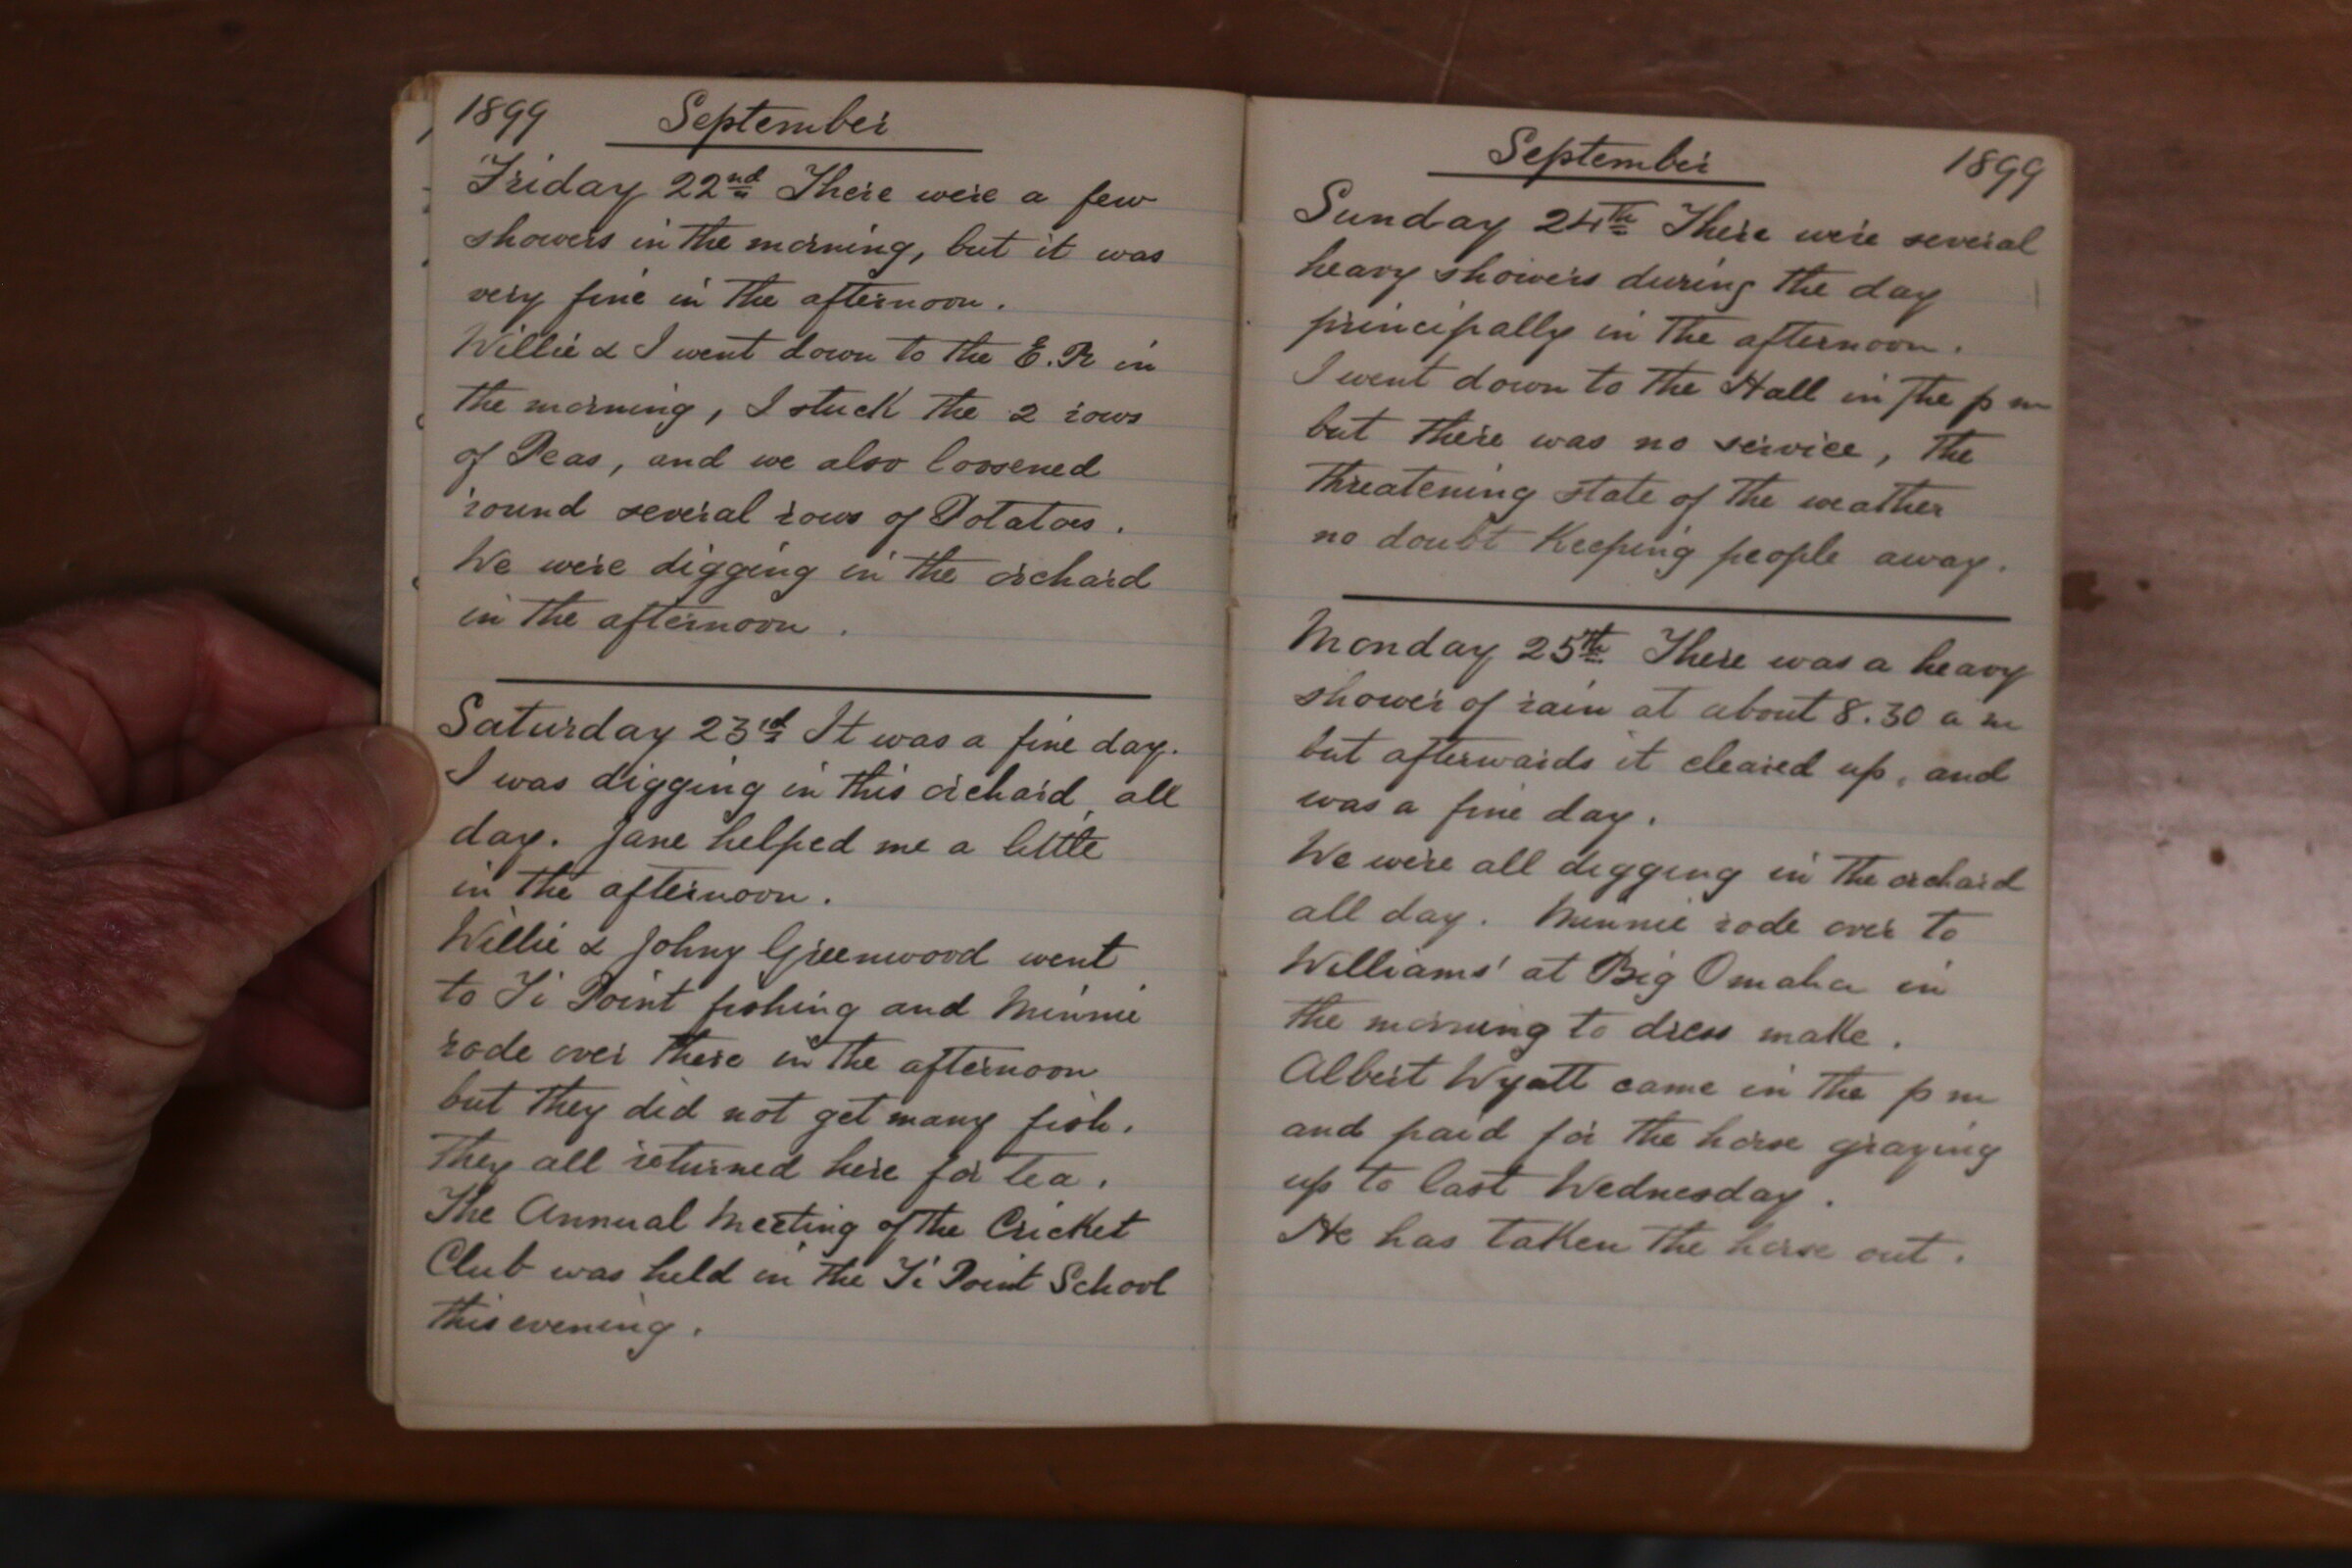 1899 September
Friday 22nd There were a few
showers in the morning, but it was
very fine in the afternoon.
Willie & I went down to the E.R in
the morning, I stuck the 2 rows
of Peas, and we also loosened
round several rows of Potatoes.
We were digging in the orchard
in the afternoon.
Saturday 23rd It was a fine day.
I was digging in this orchard, all
day. Jane helped me a little
in the afternoon.
Willie & Johny Greenwood went
to Ti Point fishing and Minnie
rode over there in the afternoon
but they did not get many fish.
They all returned here for tea.
The Annual Meeting of the Cricket
Club was held in the Ti Point School
this evening.
September 1899
Sunday 24th There were several
heavy showers during the day
principally in the afternoon.
I went down to the Hall in the p m
but there was no service, the
threatening state of the weather
no doubt keeping people away.
Monday 25th There was a heavy
shower of rain at about 8.30 a m
but afterwards it cleared up, and
was a fine day.
We were all digging in the orchard
all day. Minnie rode over to
Williams' at Big Omaha in
the morning to dress make.
Albert Wyatt came in the p m
and paid for the horse grazing
up to last Wednesday.
He has taken the horse out.